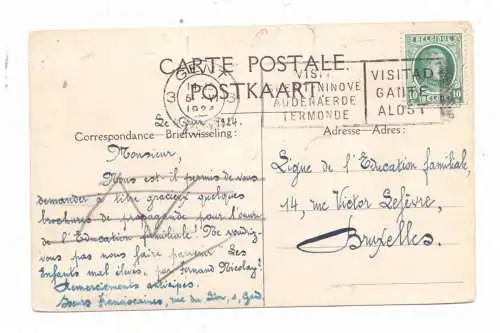 CARTE POSTALE.
POSTKAART
GENT
3 3
5 VI
1924
VISIT
NINOVE
AUDENAERDE
TERMONDE
VISITAD
GANTE
ALOST
BELGIQUE
10 10
Le juin 1924.
Correspondance - Briefwisseling:
Adresse - Adres:
Monsieur,
Nous est-il permis de vous
demander à titre gracieux quelques
brochures de propagande pour l'
de l'Education familiale? Ne voudriez-
vous pas nous faire parvenir Les
Enfants mal élevés. par Fernand Nicolay?
Remerciements anticipés.
Soeurs Franciscaines, rue du Gand.
Ligue de l'Education familiale,
14, rue Victor Lefèvre,
Bruxelles.